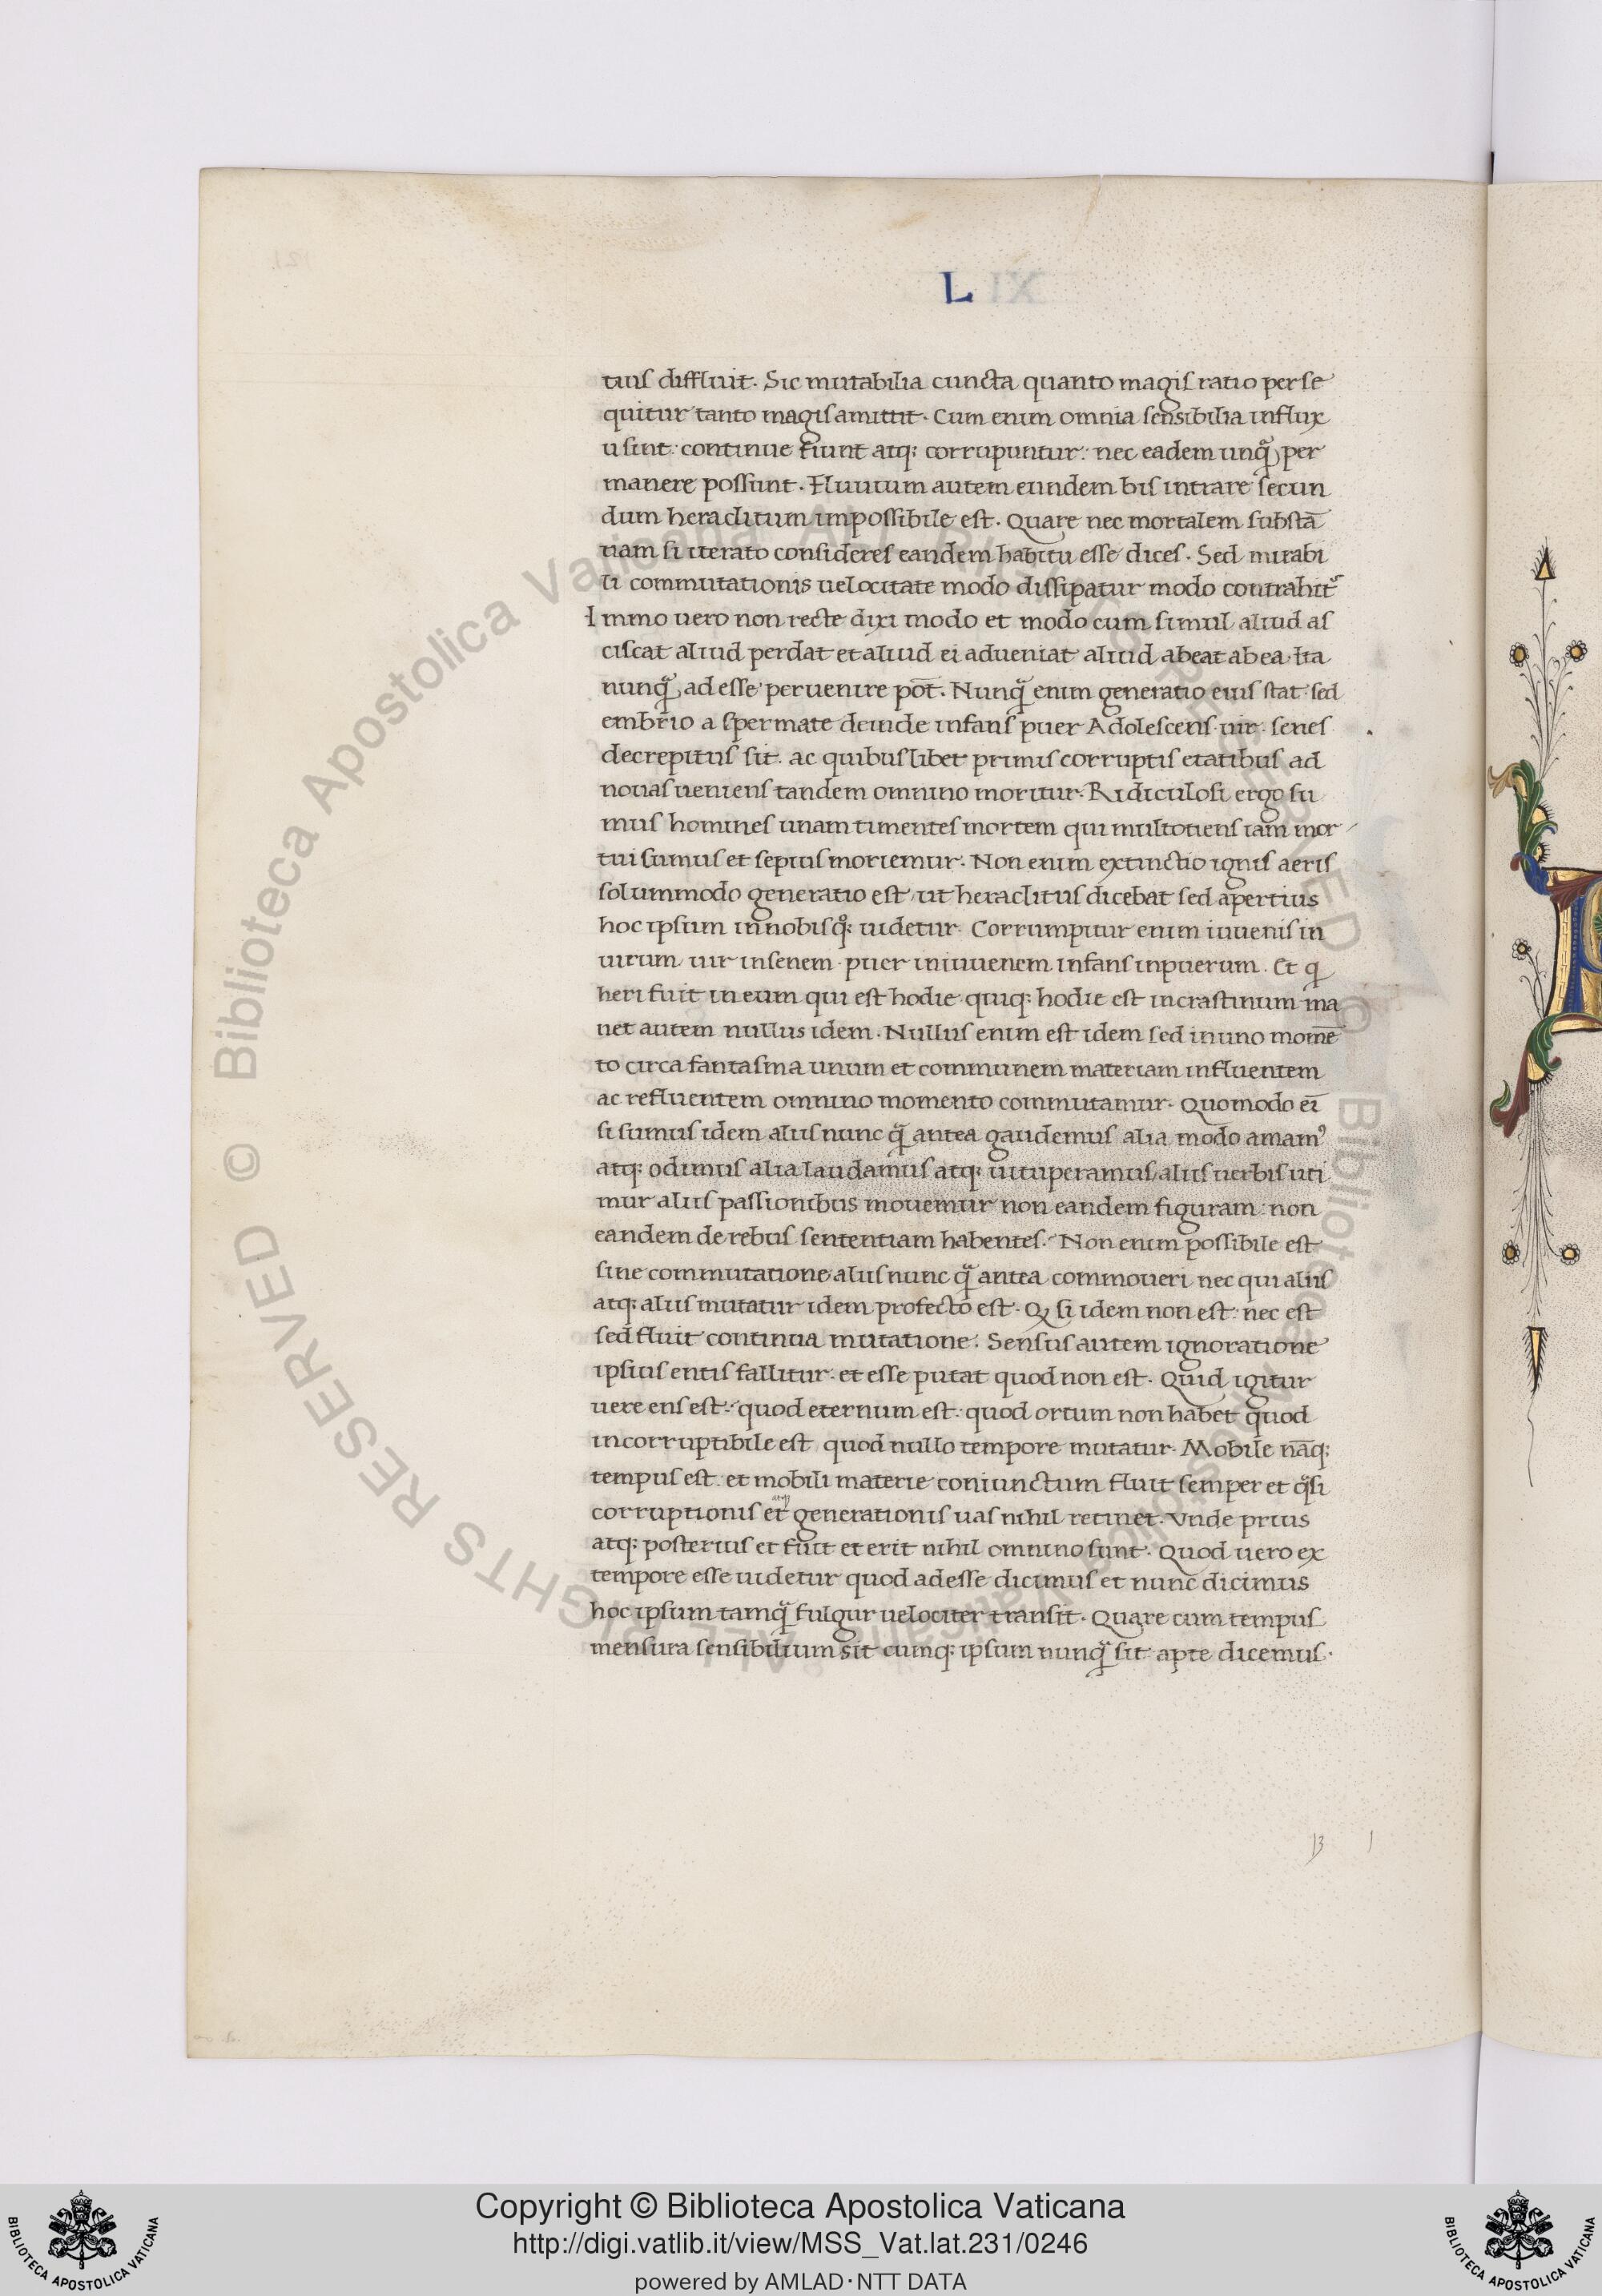 L
tuis diffluit. Sic mutabilia cuncta quanto magis ratio perse
quitur tanto magis amittit. Cum enim omnia sensibilia influx
u sint: continue fiunt atq; corrupuntur: nec eadem unq̃ per
manere possunt. Fluuium autem eundem bis intrare secun
dum heraclitum impossibile est. Quare nec mortalem substā
tiam si iterato consideres eandem habitu esse dices. Sed mirabi
li commutationis uelocitate modo dissipatur modo contrahit᷑
Immo uero non recte dixi modo et modo cum simul aliud as
ciscat aliud perdat et aliud ei adueniat aliud abeat ab ea. Ita
nunq̃ ad esse peruenire pōt. Nunq̃ enim generatio eius stat: sed
embrio a spermate deinde infans puer Adolescens. uir. senes
decrepitus sit. ac quibuslibet primis corruptis etatibus ad
nouas ueniens tandem omnino moritur. Ridiculosi ergo su
mus homines unam timentes mortem qui multotiens iam mor
tui sumus et sepius moriemur. Non enim extinctio ignis aeris
solummodo generatio est, ut heraclitus dicebat sed apertius
hoc ipsum in nobis qͦ; uidetur. Corrumpitur enim iuuenis in
uirum. uir in senem. puer in iuuenem infans in puerum. Et q
heri fuit in eum qui est hodie. quiq; hodie est in crastinum ma
net autem nullus idem. Nullus enim est idem sed in uno momē
to circa fantasma unum et communem materiam influentem
ac refluentem omnino momento commutamur. Quomodo eī
si sumus idem aliis nunc q̃ antea gaudemus alia modo amamꝰ
atq; odimus alia laudamus atq; uituperamus, aliis uerbis uti
mur aliis passionibus mouemur non eandem figuram: non
eandem de rebus sententiam habentes. Non enim possibile est
sine commutatione aliis nunc q̃ antea commoueri nec qui aliis
atq; aliis mutatur idem profecto est. Q si idem non est: nec est
sed fluit continua mutatione. Sensus autem ignoratione
ipsius entis fallitur. et esse putat quod non est. Quid igitur
uere ens est: quod eternum est: quod ortum non habet quod
incorruptibile est, quod nullo tempore mutatur. Mobile nāq;
tempus est. et mobili materie coniunctum fluit semper et q̃si
corruptionis et generationis uas nihil retinet. Vnde prius
atq; posterius et fuit et erit nihil omnino sunt. Quod uero ex
tempore esse uidetur quod adesse dicimus et nunc dicimus
hoc ipsum tamq̃ fulgur uelociter transit. Quare cum tempus
mensura sensibilium sit cumq; ipsum nunq̃ sit apte dicemus.
Biblioteca Apostolica Vaticana ALL RIGHTS RESERVED ©
Copyright © Biblioteca Apostolica Vaticana
http://digi.vatlib.it/view/MSS_Vat.lat.231/0246
powered by AMLAD·NTT DATA
BIBLIOTECA APOSTOLICA VATICANA
BIBLIOTECA APOSTOLICA VATICANA